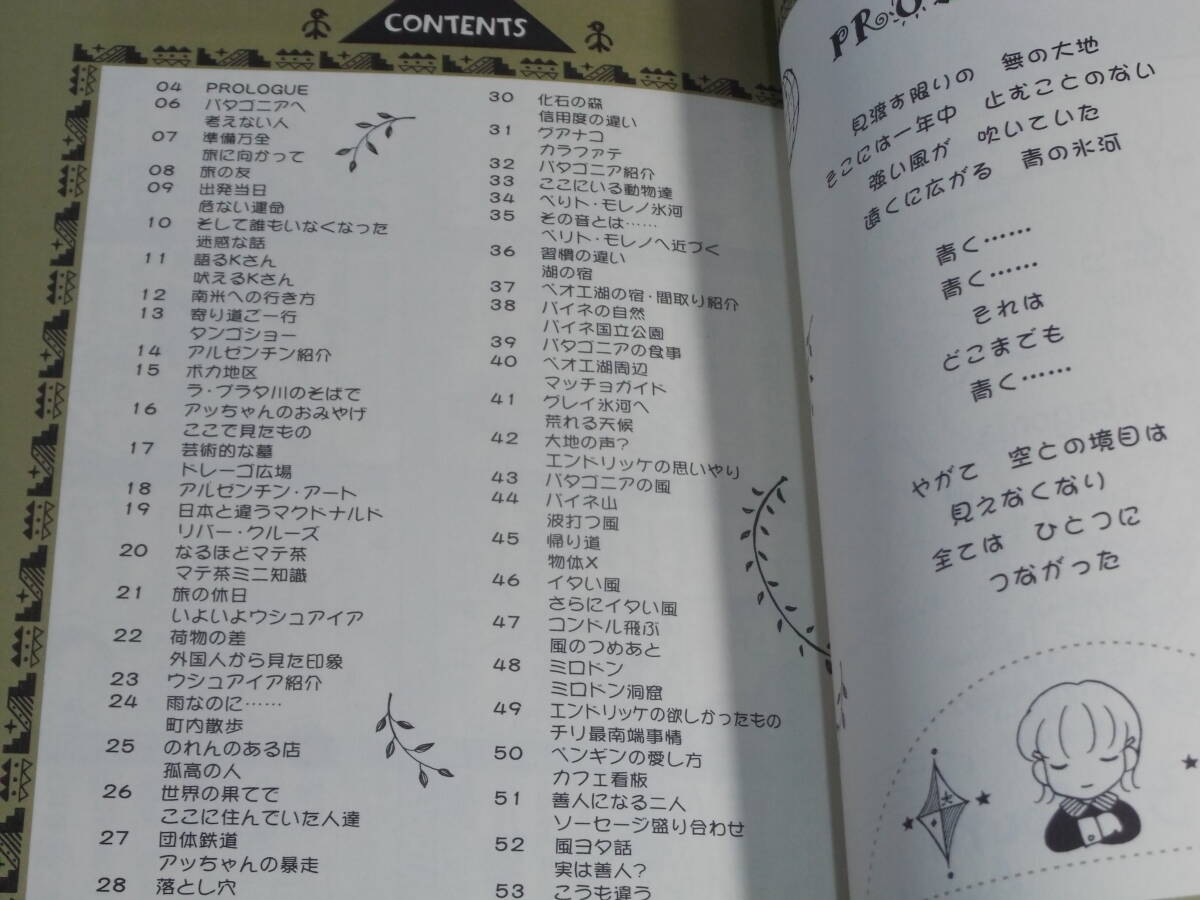 CONTENTS
04 PROLOGUE
06 パタゴニアへ
考えない人
07 準備万全
旅に向かって
08 旅の友
09 出発当日
危ない運命
10 そして誰もいなくなった
迷惑な話
11 語るKさん
吠えるKさん
12 南米への行き方
13 寄り道ご一行
タンゴショー
14 アルゼンチン紹介
15 ボカ地区
ラ・プラタ川のそばで
16 アッちゃんのおみやげ
ここで見たもの
17 芸術的な墓
ドレーゴ広場
18 アルゼンチン・アート
19 日本と違うマクドナルド
リバー・クルーズ
20 なるほどマテ茶
マテ茶ミニ知識
21 旅の休日
いよいよウシュアイア
22 荷物の差
外国人から見た印象
23 ウシュアイア紹介
24 雨なのに……
町内散歩
25 のれんのある店
孤高の人
26 世界の果てで
ここに住んでいた人達
27 団体鉄道
アッちゃんの暴走
28 落とし穴
30 化石の森
信用度の違い
31 グアナコ
カラファテ
32 パタゴニア紹介
33 ここにいる動物達
34 ペリト・モレノ氷河
35 その音とは……
ペリト・モレノへ近づく
36 習慣の違い
湖の宿
37 ペオエ湖の宿・間取り紹介
38 パイネの自然
パイネ国立公園
39 パタゴニアの食事
40 ペオエ湖周辺
マッチョガイド
41 グレイ氷河へ
荒れる天候
42 大地の声?
エンドリッケの思いやり
43 パタゴニアの風
44 パイネ山
波打つ風
45 帰り道
物体X
46 イタい風
さらにイタい風
47 コンドル飛ぶ
風のつめあと
48 ミロドン
ミロドン洞窟
49 エンドリッケの欲しかったもの
チリ最南端事情
50 ペンギンの愛し方
カフェ看板
51 善人になる二人
ソーセージ盛り合わせ
52 風ヨタ話
実は善人?
53 こうも違う
見渡す限りの 無の大地
そこには一年中 止むことのない
強い風が 吹いていた
遠くに広がる 青の氷河
青く……
青く……
それは
どこまでも
青く……
やがて 空との境目は
見えなくなり
全ては ひとつに
つながった